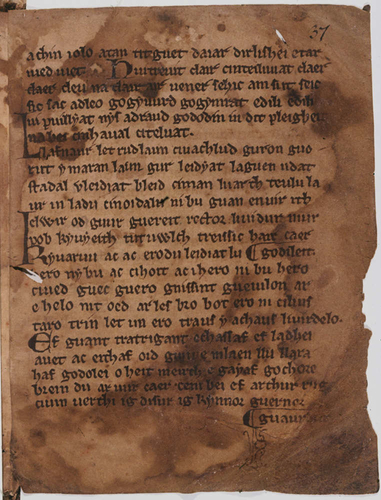 37
achin iolo atan titguet daiar dirlishei etar
med met. Dugtreint clair cinteiluuat claer
claer cleu na clair air uener sehic am sut seic
sic sac adleo gogyuurd gogymrat edili edili
ui puillyat nys adraud gododin in dit pleigheit
na bei cinhaual citeluat.
Llafnaur let rud laun ciuachlud guron guo
rut y maran laun gur leidyat laguen udat
stadal vleidiat bleid ciman luarch teulu la
ur in ladu cinoidalu ni bu guan enuir ith
elwir od guur guereit rector liuidur mur
pob kyuyeith tut uwlch treissic hair caer
Ryuaruu ac ac erodu leidiat lu godileit.
ero ny bu ac cihoit ac i hero ni bu hero
ciued guec guero gnissint gueuilon ar
e helo nit oed ar les bro bot ero ni cilius
taro trin let un ero traus y achaus liuirdelo.
Ef guant tratrigant echassaf ef ladhei
auet ac eithaf oid guiu e mlaen llu llara
haf godolei o heit meirch e gayaf gochore
brein du ar uur caer ceni bei ef arthur rug
ciuin uerthi ig disur ig kynnor guernor
guaur